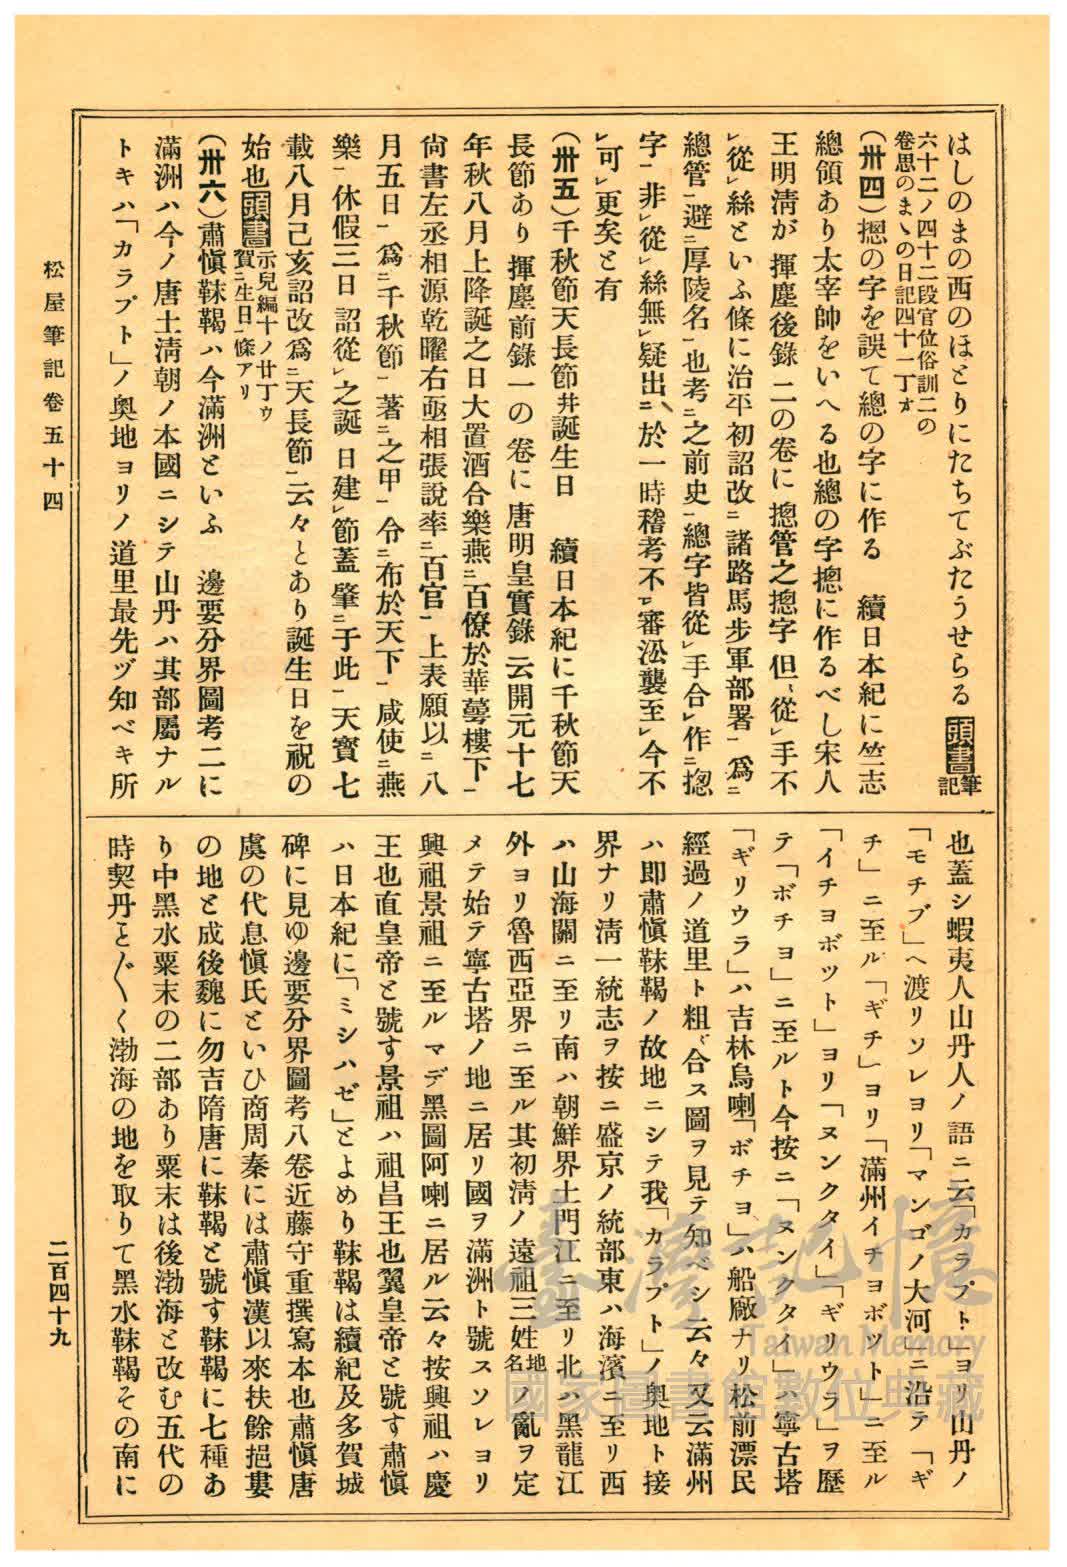 はしのまの西のほとりにたちてぶたうせらる頭書筆記
六十二ノ四十二段官位俗訓二の
卷思のまゝの日記四十一丁オ
(卅四)摠の字を誤て總の字に作る　續日本紀に竺志
總領あり太宰帥をいへる也總の字摠に作るべし宋人
王明淸が揮塵後錄二の卷に摠管之摠字但從手不
從絲といふ條に治平初詔改諸路馬步軍部署爲
總管避厚陵名也考之前史總字皆從手合作摠
字非從絲無疑出於一時稽考不審㳂襲至今不
可更矣と有
(卅五)千秋節天長節幷誕生日　續日本紀に千秋節天
長節あり揮塵前錄一の卷に唐明皇實錄云開元十七
年秋八月上降誕之日大置酒合樂燕百僚於華蕚樓下
尙書左丞相源乾曜右亟相張說率百官上表願以八
月五日爲千秋節著之甲令布於天下咸使燕
樂休假三日詔從之誕日建節蓋肇于此天寶七
載八月己亥詔改爲天長節云々とあり誕生日を祝の
始也頭書示兒編十ノ廿丁ウ
賀生日條アリ
(卅六)肅愼靺鞨ハ今滿洲といふ　邊要分界圖考二に
滿洲ハ今ノ唐土淸朝ノ本國ニシテ山丹ハ其部屬ナル
トキハ「カラプト」ノ奧地ヨリノ道里最先ヅ知ベキ所
也蓋シ蝦夷人山丹人ノ語ニ云「カラプト」ヨリ山丹ノ
「モチブ」ヘ渡リソレヨリ「マンゴノ大河」ニ沿テ「ギ
チ」ニ至ル「ギチ」ヨリ「滿州イチヨボット」ニ至ル
「イチヨボット」ヨリ「ヌンクタイ」「ギリウラ」ヲ歷
テ「ボチヨ」ニ至ルト今按ニ「ヌンクタイ」ハ寧古塔
「ギリウラ」ハ吉林烏喇「ボチヨ」ハ船廠ナリ松前漂民
經過ノ道里ト粗合ス圖ヲ見テ知ベシ云々又云滿州
ハ卽肅愼靺鞨ノ故地ニシテ我「カラプト」ノ奧地ト接
界ナリ淸一統志ヲ按ニ盛京ノ統部東ハ海濱ニ至リ西
ハ山海關ニ至リ南ハ朝鮮界土門江ニ至リ北ハ黑龍江
外ヨリ魯西亞界ニ至ル其初淸ノ遠祖三姓地名ノ亂ヲ定
メテ始テ寧古塔ノ地ニ居リ國ヲ滿洲ト號スソレヨリ
興祖景祖ニ至ルマデ黑圖阿喇ニ居ル云々按興祖ハ慶
王也直皇帝と號す景祖ハ祖昌王也翼皇帝と號す肅愼
ハ日本紀に「ミシハゼ」とよめり靺鞨は續紀及多賀城
碑に見ゆ邊要分界圖考八卷近藤守重撰寫本也肅愼唐
虞の代息愼氏といひ商周秦には肅愼漢以來扶餘挹婁
の地と成後魏に勿吉隋唐に靺鞨と號す靺鞨に七種あ
り中黑水粟末の二部あり粟末は後渤海と改む五代の
時契丹こと〲く渤海の地を取りて黑水靺鞨その南に
松屋筆記卷五十四
二百四十九
臺灣記憶
Taiwan Memory
國家圖書館數位典藏